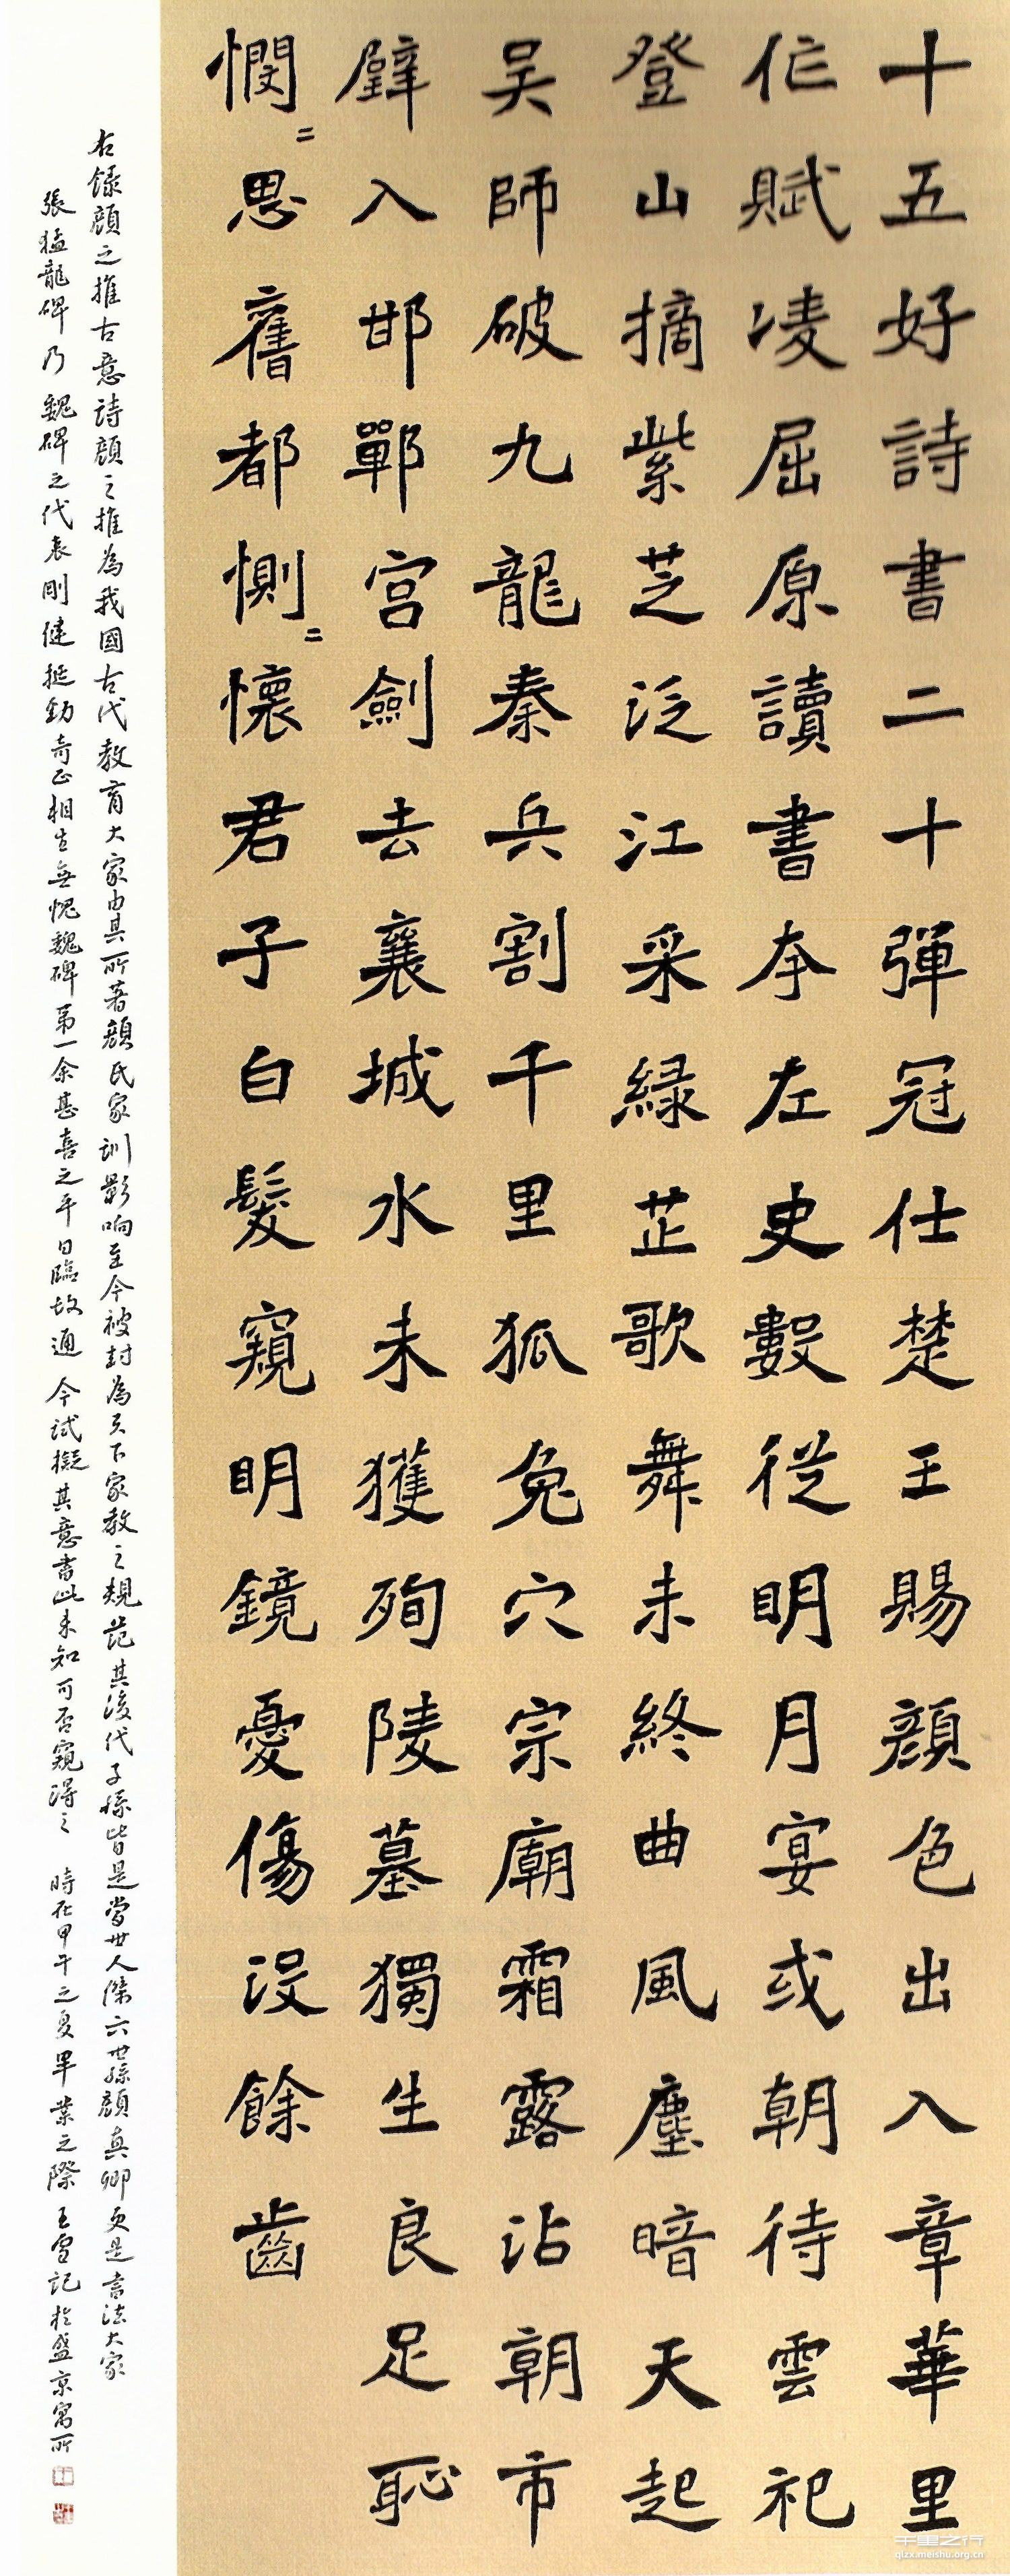 十五好詩書二十彈冠仕楚王賜顔色出入章華里
作賦凌屈原讀書夸左史數從明月宴或朝待雲祀
登山摘紫芝泛江采緑芷歌舞未終曲風塵暗天起
吴師破九龍秦兵割千里狐兔穴宗廟霜露沾朝市
璧入邯鄲宫劍去襄城水未獲殉陵墓獨生良足恥
憫〻思舊都惻〻懷君子白髮窺明鏡憂傷没餘齒
右録顔之推古意詩顔之推為我國古代教育大家由其所著顔氏家訓影响至今被封為天下家教之規范其後代子孫皆是當世人傑六世孫顔真卿更是書法大家
張猛龍碑乃魏碑之代表剛健挺勁奇正相生無愧魏碑第一余甚喜之平日臨故通今試擬其意書此未知可否窺得之 時在甲午之夏畢業之際王雪記於盛京寓所
千里之行
qlzx.meishu.org.cn